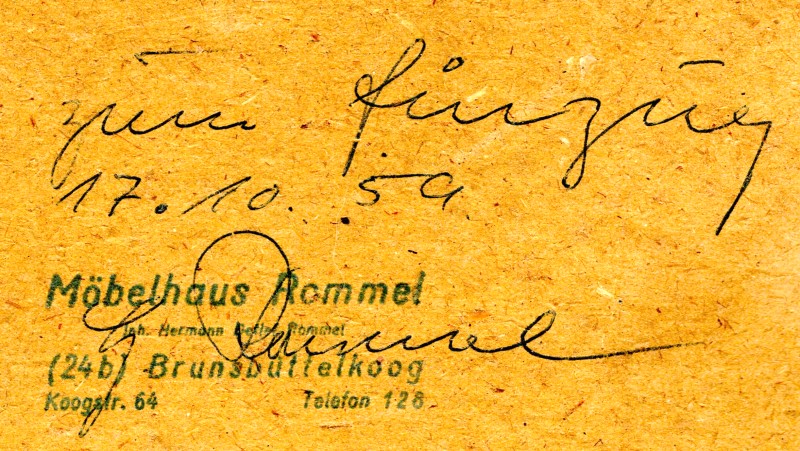 zum Einzug
17.10.59
Möbelhaus Rommel
Inh. Hermann Detlef Rommel
(24b) Brunsbüttelkoog
Koogstr. 64 Telefon 128
Rommel